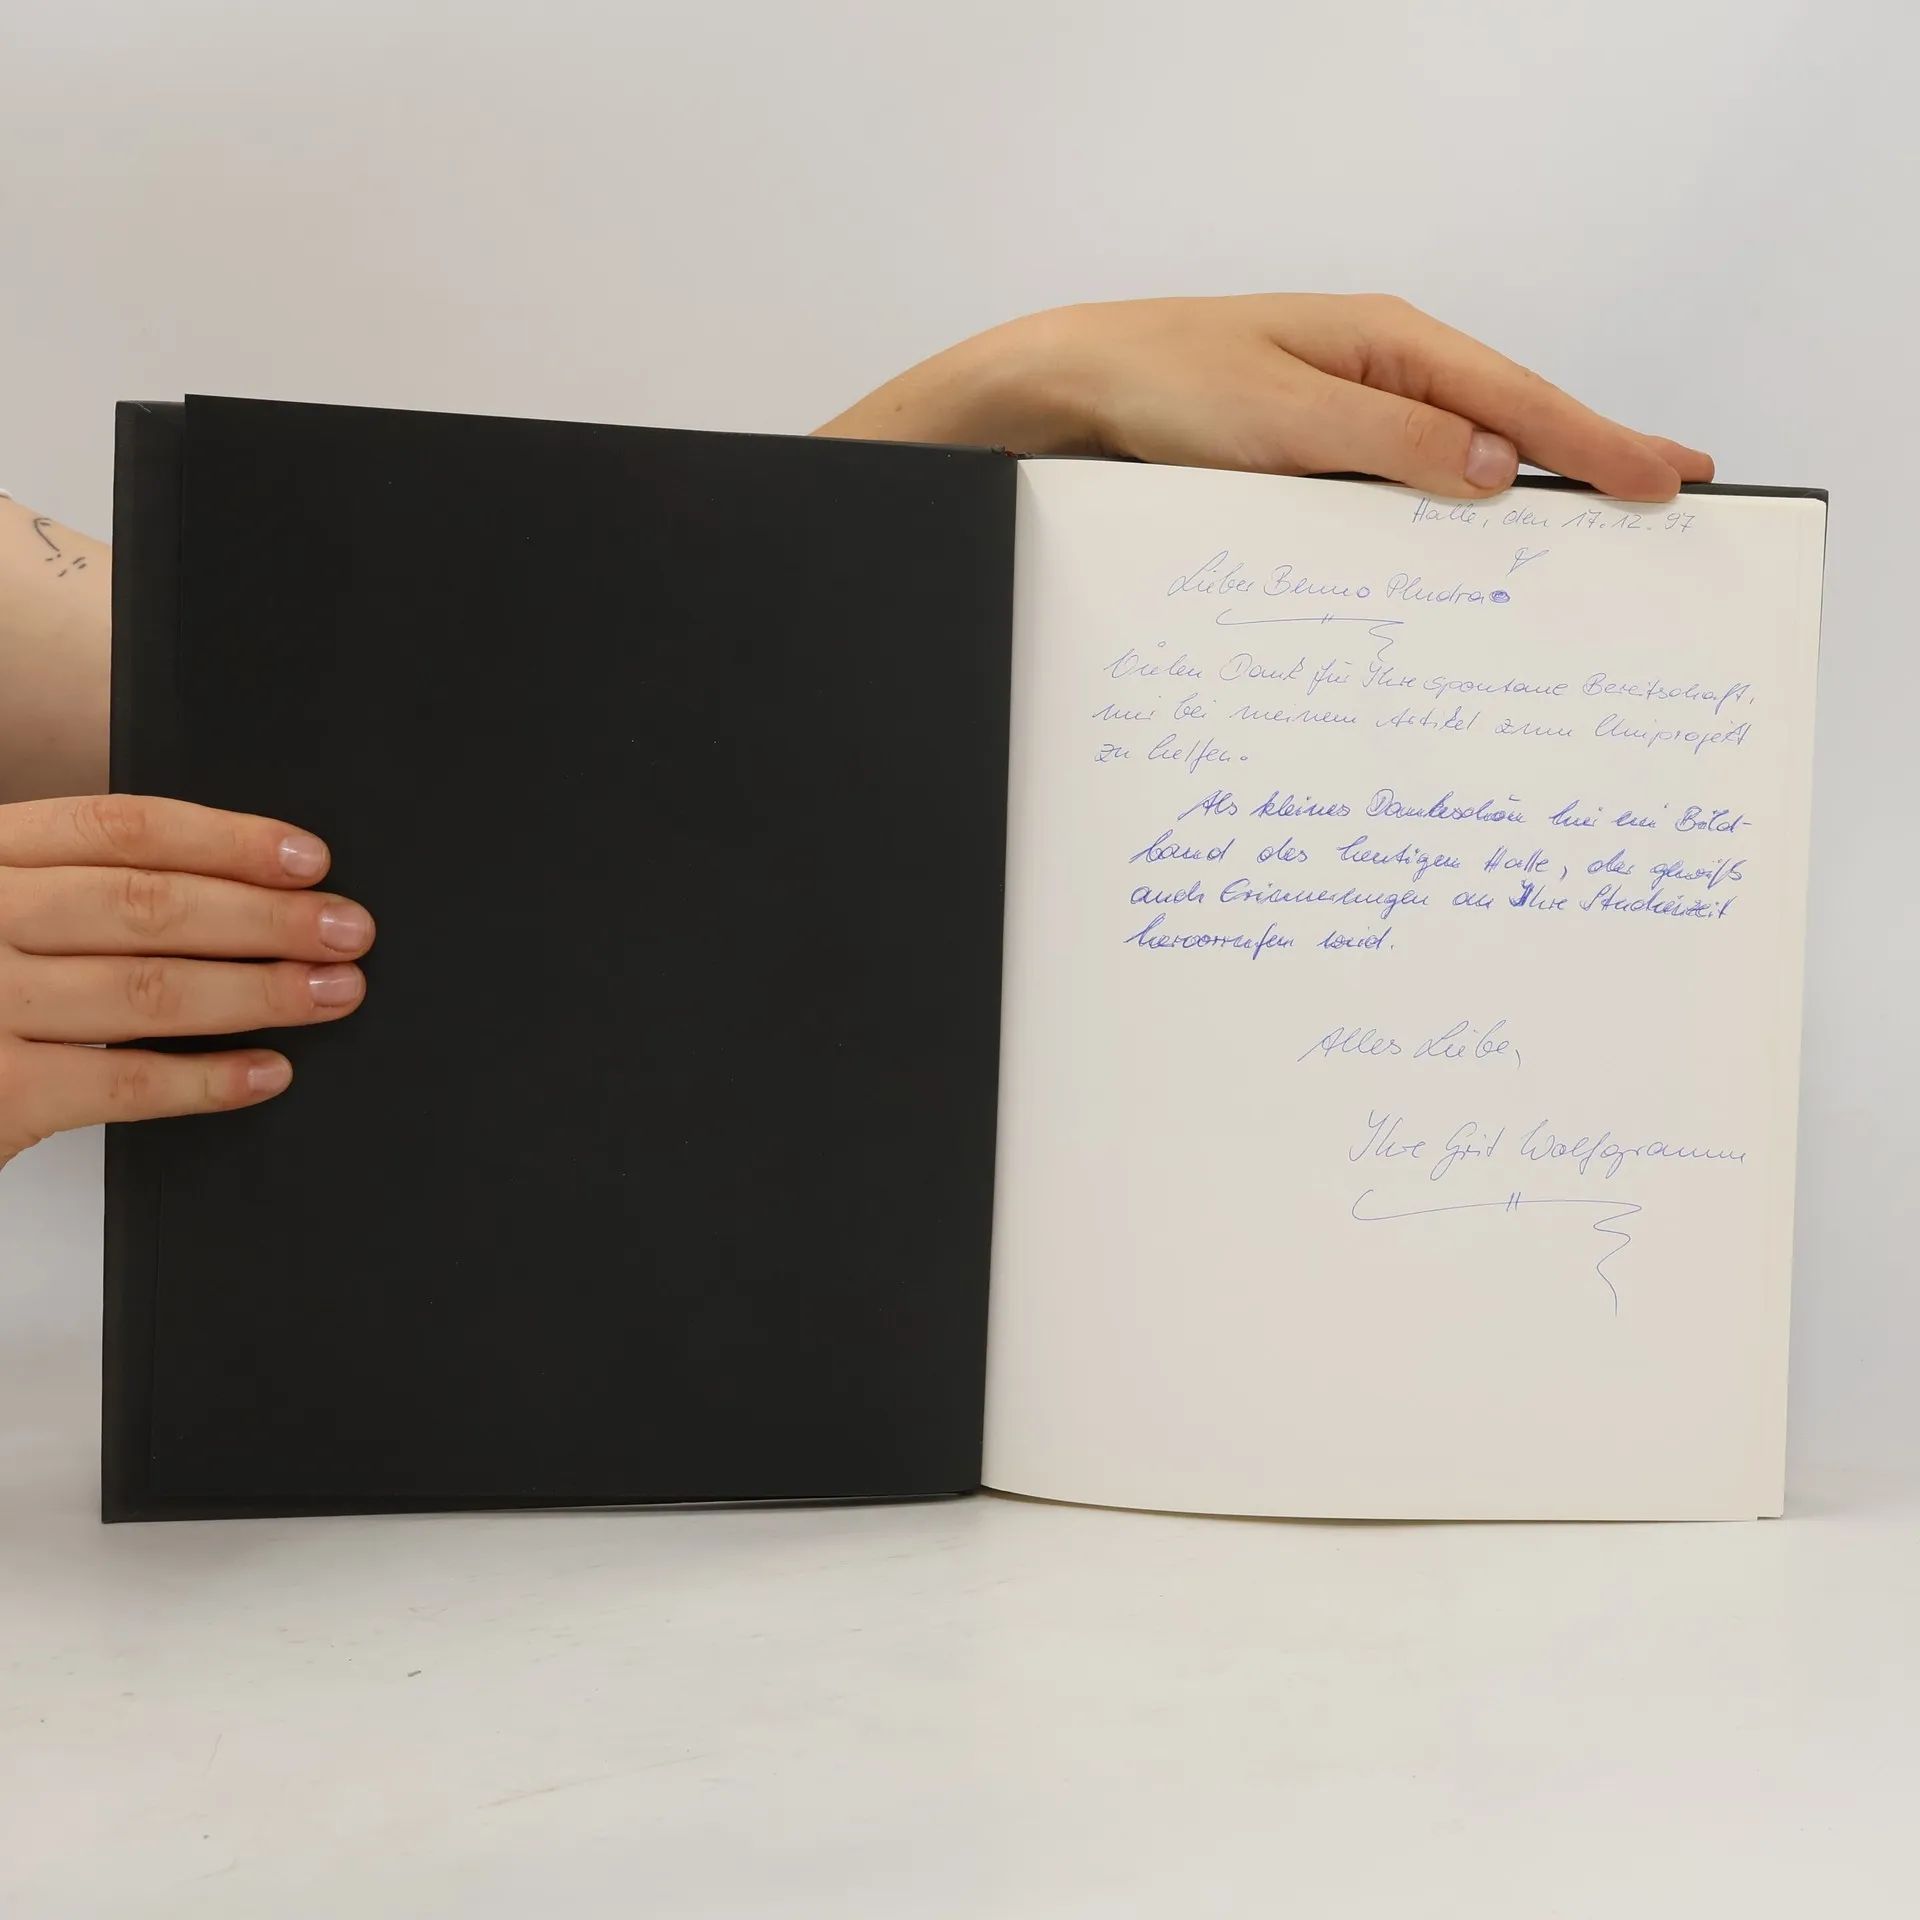 Halle, den 17.12.97
Lieber Benno Pludra
Vielen Dank für Ihre spontane Bereitschaft,
mir bei meinem Artikel zum Uniprojekt
zu helfen.
Als kleines Dankeschön hier ein Bild-
band des heutigen Halle, der gewiß
auch Erinnerungen an Ihre Studienzeit
hervorrufen wird.
Alles Liebe,
Ihre Grit Wolfgramm